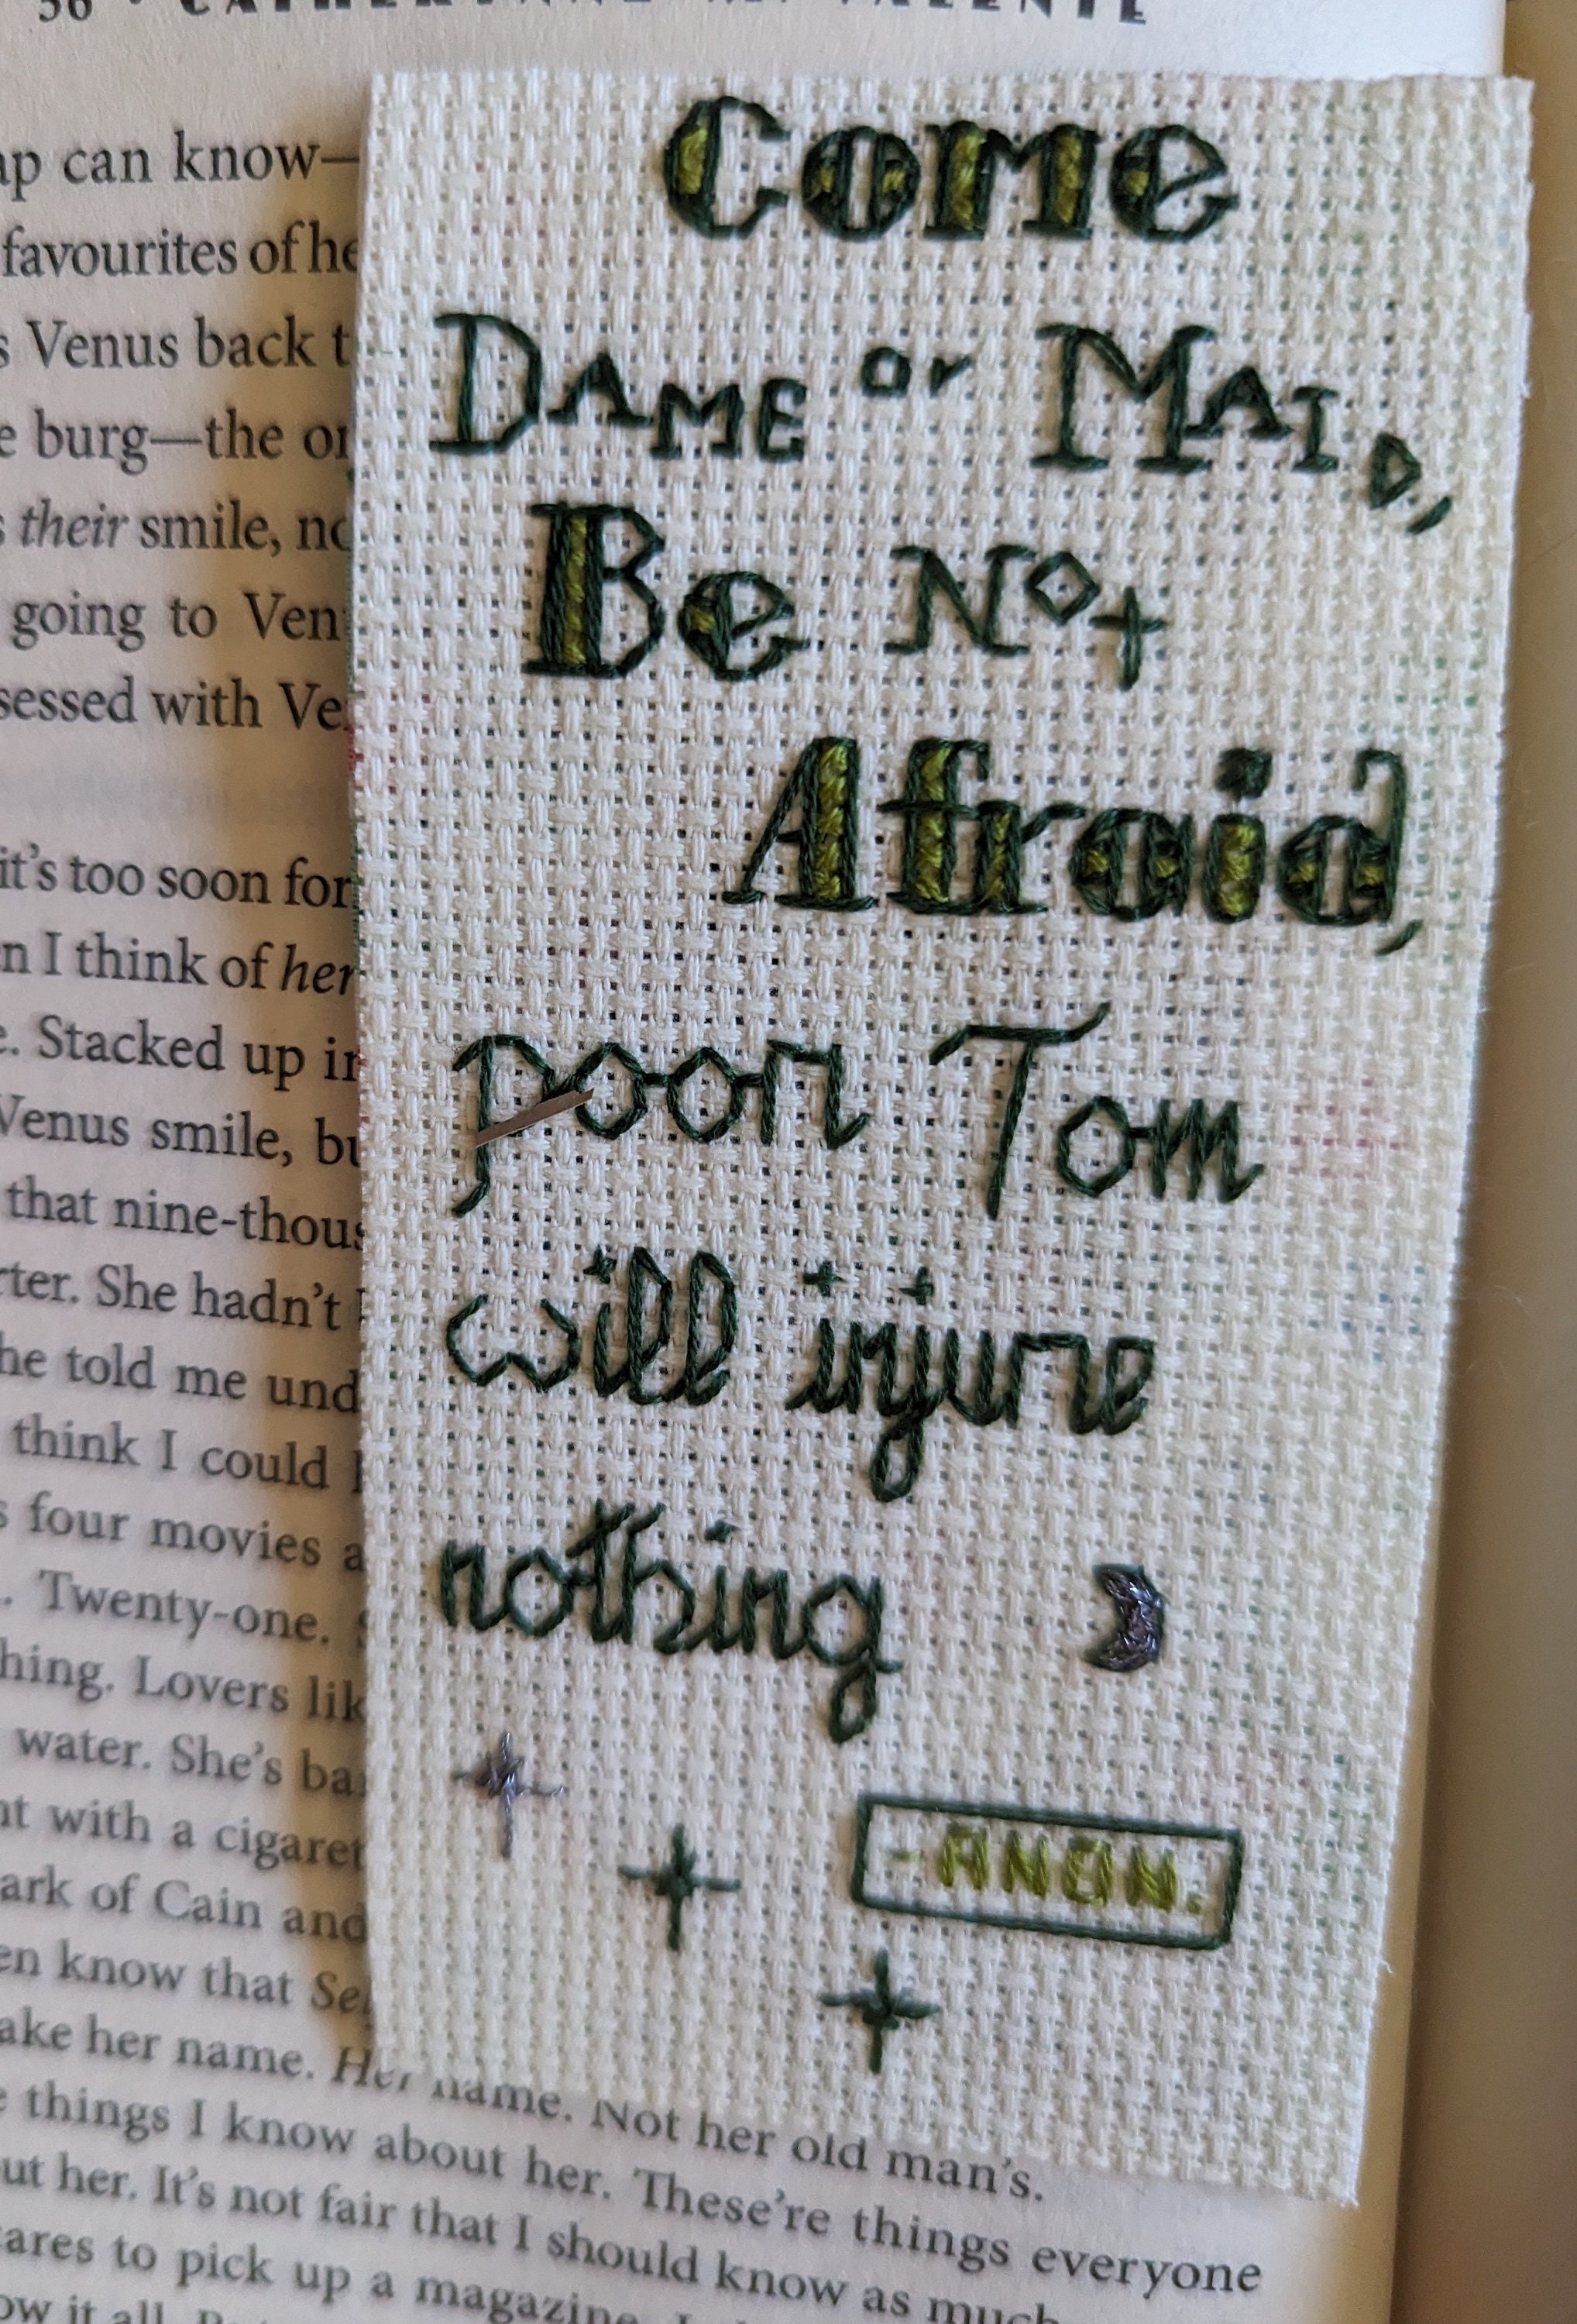 56 · CATHERYNNE M. VALENTE
can know—
favourites of
Venus back
burg—the
their smile,
going to
with
it's too soon for
I think of her
Stacked up
Venus smile,
that nine-
She hadn't
told me
think I could
four movies
Twenty-one.
Lovers
water. She's
with a
of Cain and
know that
her name. Her name. Not her old man's.
things I know about her. These're things everyone
her. It's not fair that I should know as much
to pick up a magazine.
it all.
Come
DAME or MAID,
Be Not
Afraid,
poor Tom
will injure
nothing
-ANON.